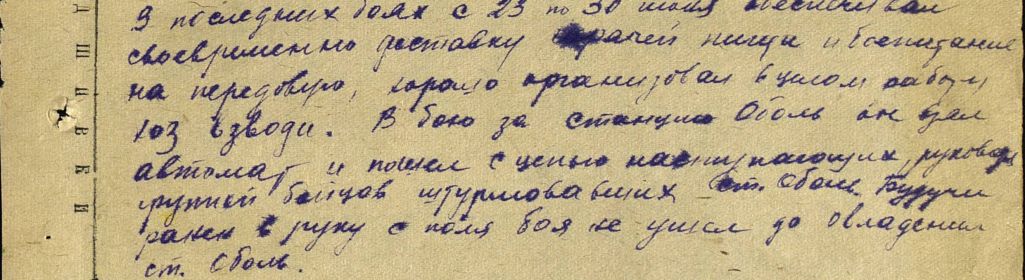 В последних боях с 23 по 30 июня обеспечивал
своевременно доставку горячей пищи и боепитание
на передовую, хорошо организовал в целом работу
хоз взвода. В бою за станцию Оболь он взял
автомат и пошел с цепью наступающих, руководя
группой бойцов штурмовавших ст. Оболь. Будучи
ранен в руку с поля боя не ушел до овладения
ст. Оболь.